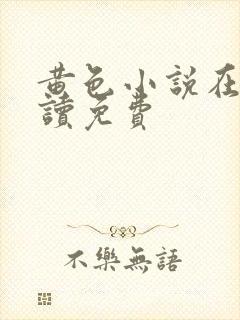 黃色小說在
讀免費
不樂無語